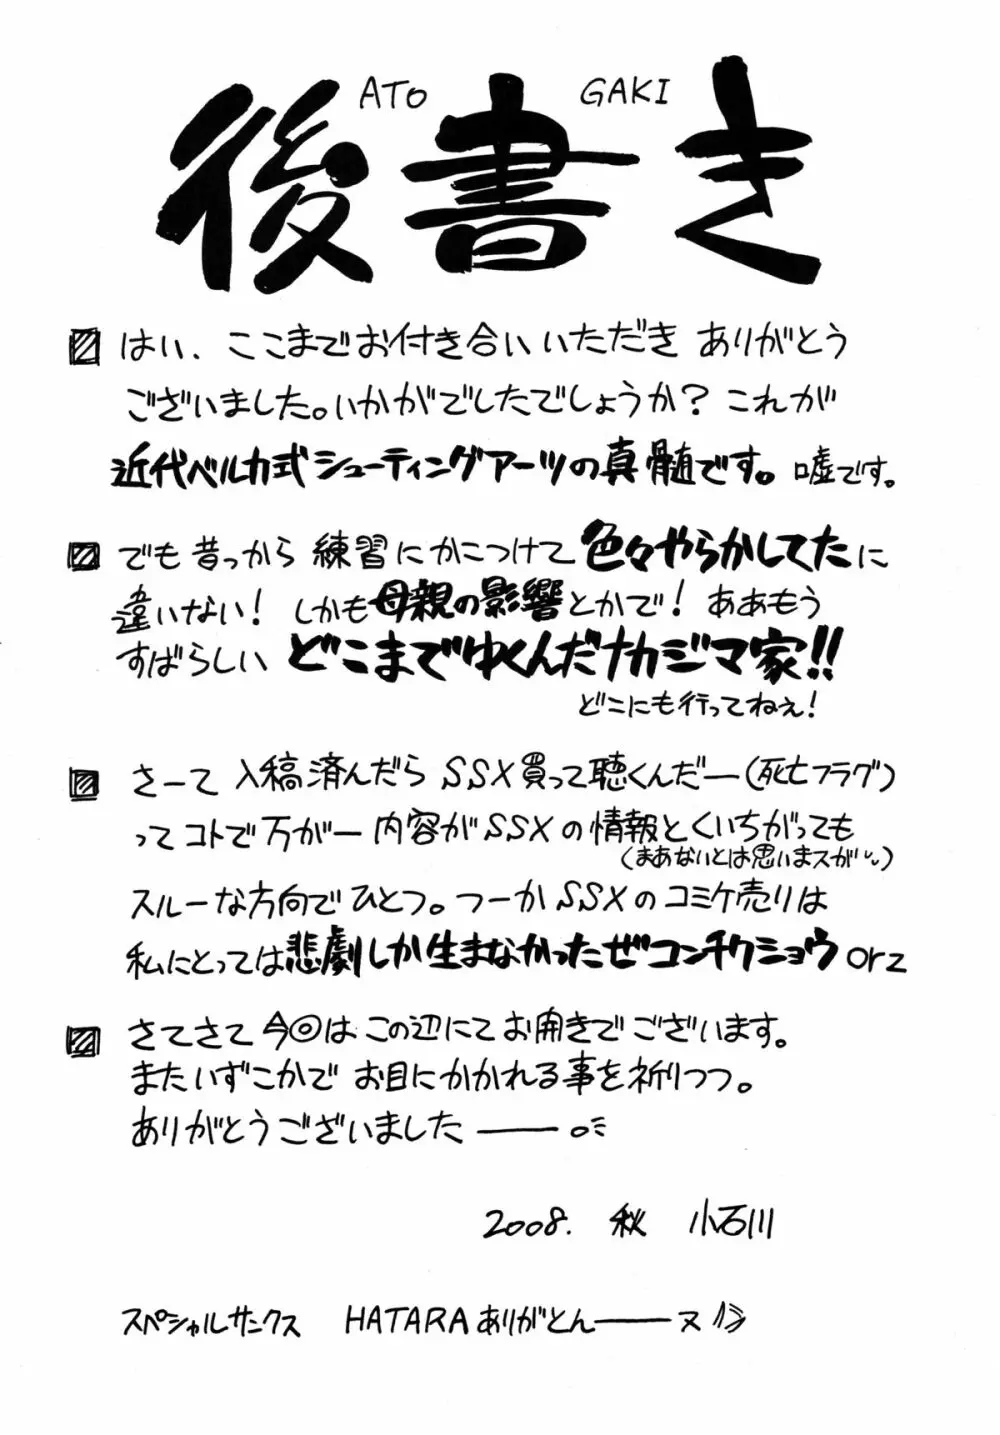 ATO GAKI
後書き
はい、ここまでお付き合いいただき ありがとう
ございました。いかがでしたでしょうか？これが
近代ベルカ式シューティングアーツの真髄です。嘘です。
でも昔っから 練習にかこつけて色々やらかしてたに
違いない！ しかも母親の影響とかで！ ああもう
すばらしい どこまでゆくんだナカジマ家!!
どこにも行ってねぇ！
さーて 入稿済んだら SSX買って聴くんだー（死亡フラグ）
ってコトで万が一 内容がSSXの情報とくいちがっても
（まあないとは思いまスが）
スルーな方向でひとつ。つーかSSXのコミケ売りは
私にとっては悲劇しか生まなかったぜコンチクショウ orz
さてさて今回はこの辺にてお開きでございます。
またいずこかで お目にかかれる事を祈りつつ。
ありがとうございました——
2008. 秋 小石川
スペシャルサンクス HATARAありがとん——ヌ